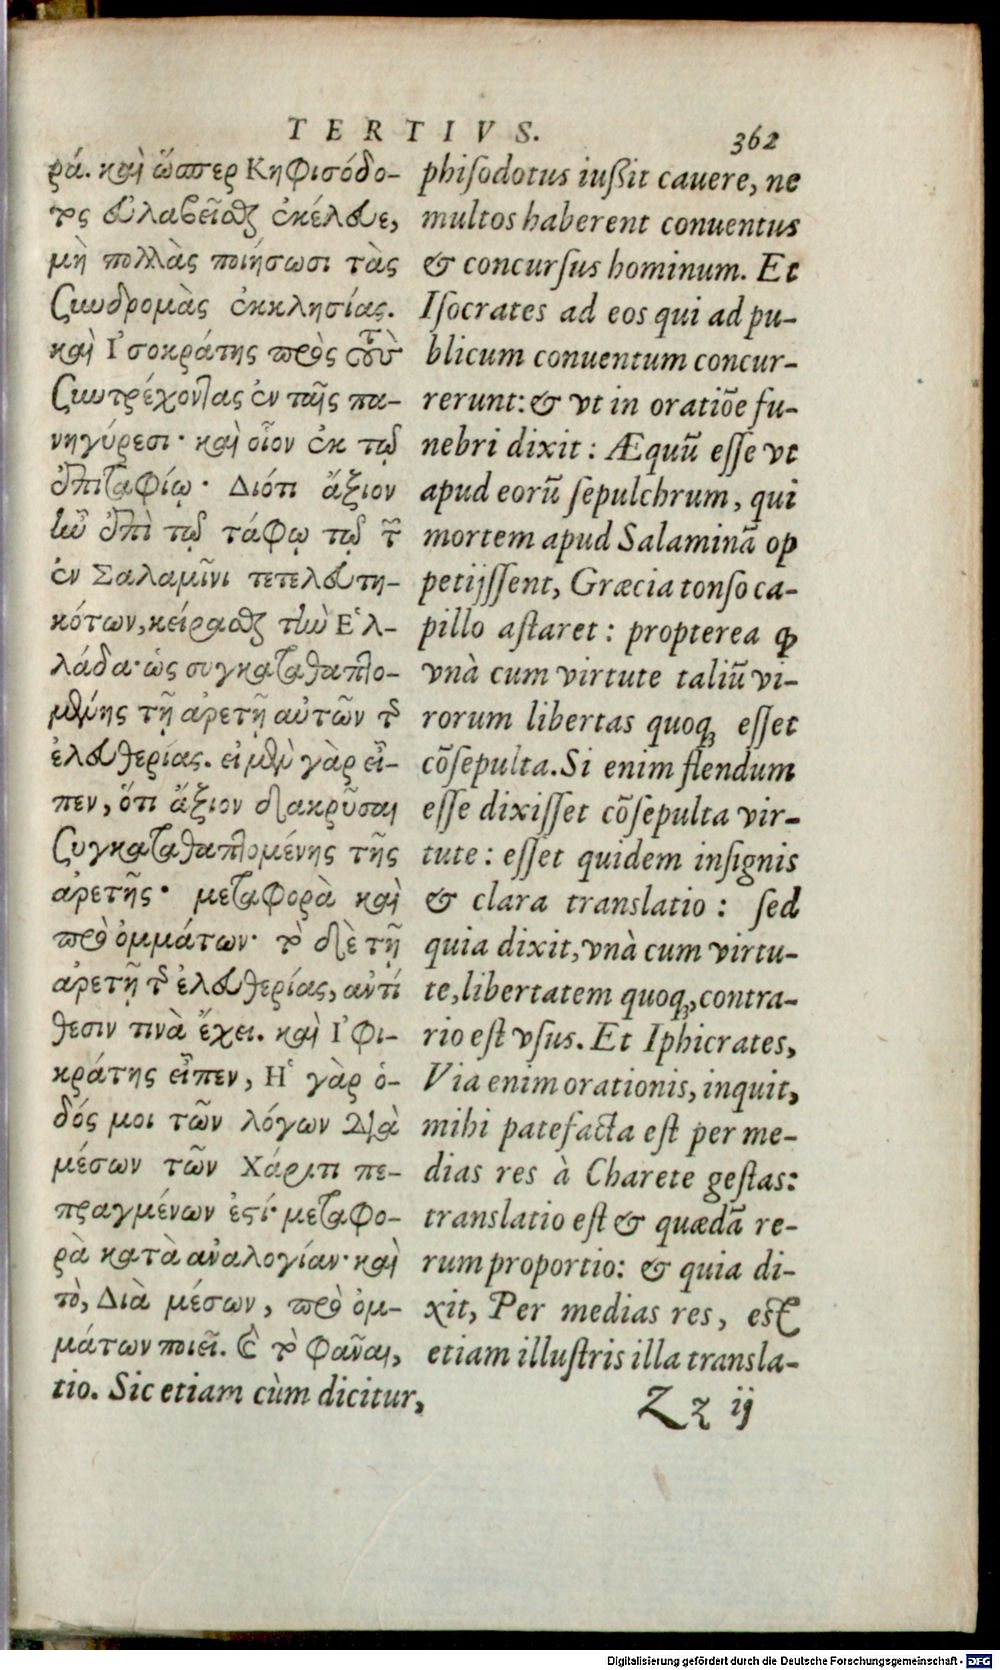 TERTIVS.
362
ρά. καὶ ὥσπερ Κηφισόδο-
τος εὐλαβεῖσθαι ἐκέλευε,
μὴ πολλὰς ποιήσωσι τὰς
συνδρομὰς ἐκκλησίας.
καὶ Ἰσοκράτης πρὸς τοὺς
συντρέχοντας ἐν ταῖς πα-
νηγύρεσι· καὶ οἷον ἐκ τῷ
ἐπιταφίῳ· Διότι ἄξιον
ἦν ἐπὶ τῷ τάφῳ τῷ τῶν
ἐν Σαλαμῖνι τετελευτη-
κότων, κείρασθαι τὴν Ἑλ-
λάδα· ὡς συγκαταθαπτο-
μένης τῇ ἀρετῇ αὐτῶν τῆς
ἐλευθερίας. εἰ μὲν γὰρ εἶ-
πεν, ὅτι ἄξιον δακρῦσαι
συγκαταθαπτομένης τῆς
ἀρετῆς· μεταφορὰ καὶ
πρὸ ὀμμάτων· τὸ δὲ τῇ
ἀρετῇ τῆς ἐλευθερίας, ἀντί
θεσιν τινὰ ἔχει. καὶ Ἰφι-
κράτης εἶπεν, Ἡ γὰρ ὁ-
δός μοι τῶν λόγων διὰ
μέσων τῶν Χάρητι πε-
πραγμένων ἐστί· μεταφο-
ρὰ κατὰ ἀναλογίαν· καὶ
τὸ, Διὰ μέσων, πρὸ ὀμ-
μάτων ποιεῖ. καὶ τὸ φάναι,
phiſodotus iußit cauere, ne
multos haberent conuentus
& concurſus hominum. Et
Iſocrates ad eos qui ad pu-
blicum conuentum concur-
rerunt: & vt in oratiõe fu-
nebri dixit: Æquũ eſſe vt
apud eorũ ſepulchrum, qui
mortem apud Salaminã op
petijſſent, Græcia tonſo ca-
pillo aſtaret: propterea ꝙ
vnà cum virtute taliũ vi-
rorum libertas quoqꝫ eſſet
cõſepulta. Si enim flendum
eſſe dixiſſet cõſepulta vir-
tute: eſſet quidem inſignis
& clara translatio: ſed
quia dixit, vnà cum virtu-
te, libertatem quoqꝫ, contra-
rio eſt vſus. Et Iphicrates,
Via enim orationis, inquit,
mihi patefacta eſt per me-
dias res à Charete geſtas:
translatio eſt & quædã re-
rum proportio: & quia di-
xit, Per medias res, eſt
etiam illuſtris illa transla-
tio. Sic etiam cùm dicitur,
Zz ij
Digitalisierung gefördert durch die Deutsche Forschungsgemeinschaft - DFG